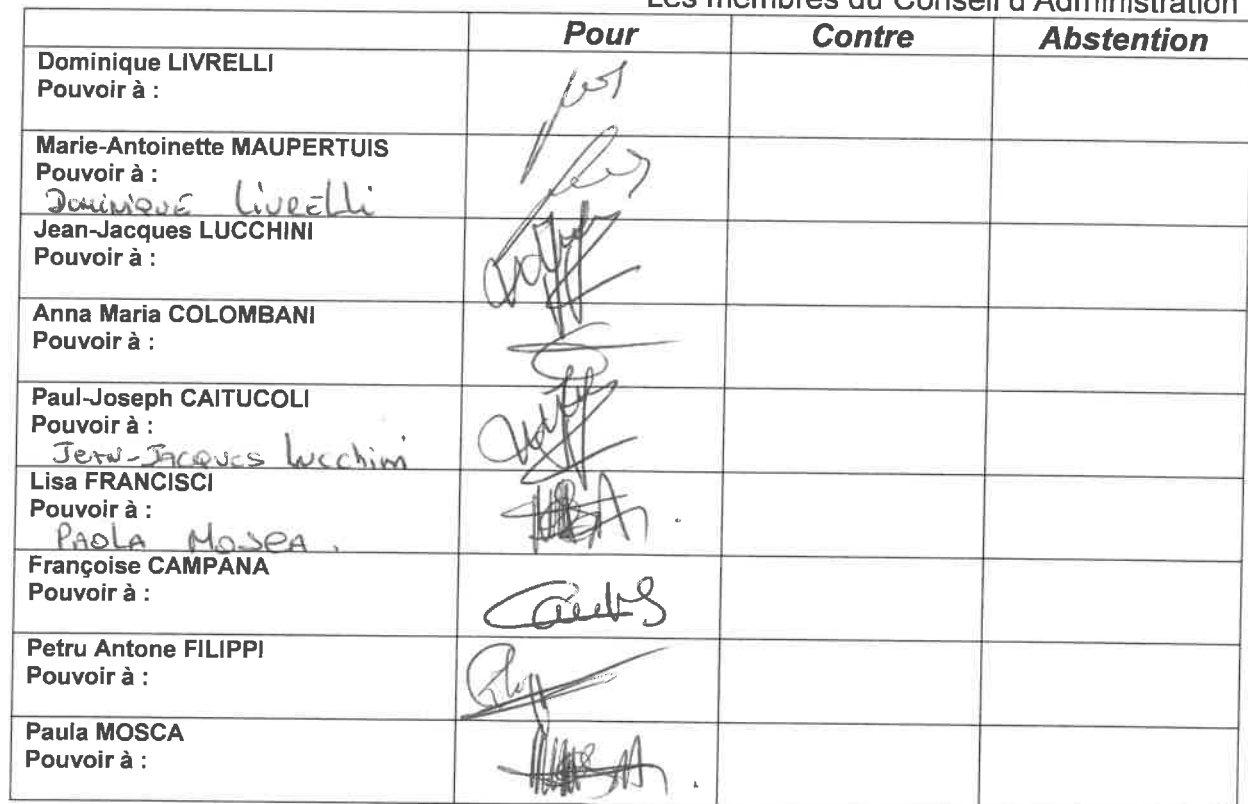 Les membres du Conseil d'Administration
Pour Contre Abstention
Dominique LIVRELLI
Pouvoir à :
Marie-Antoinette MAUPERTUIS
Pouvoir à :
Dominique Livrelli
Jean-Jacques LUCCHINI
Pouvoir à :
Anna Maria COLOMBANI
Pouvoir à :
Paul-Joseph CAITUCOLI
Pouvoir à :
Jean-Jacques Lucchini
Lisa FRANCISCI
Pouvoir à :
PAOLA MOSCA.
Françoise CAMPANA
Pouvoir à :
Petru Antone FILIPPI
Pouvoir à :
Paula MOSCA
Pouvoir à :